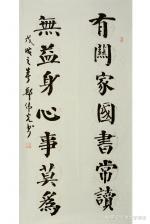 有關家國書常讀
無益身心事莫為
戊戌之春鄭偉書